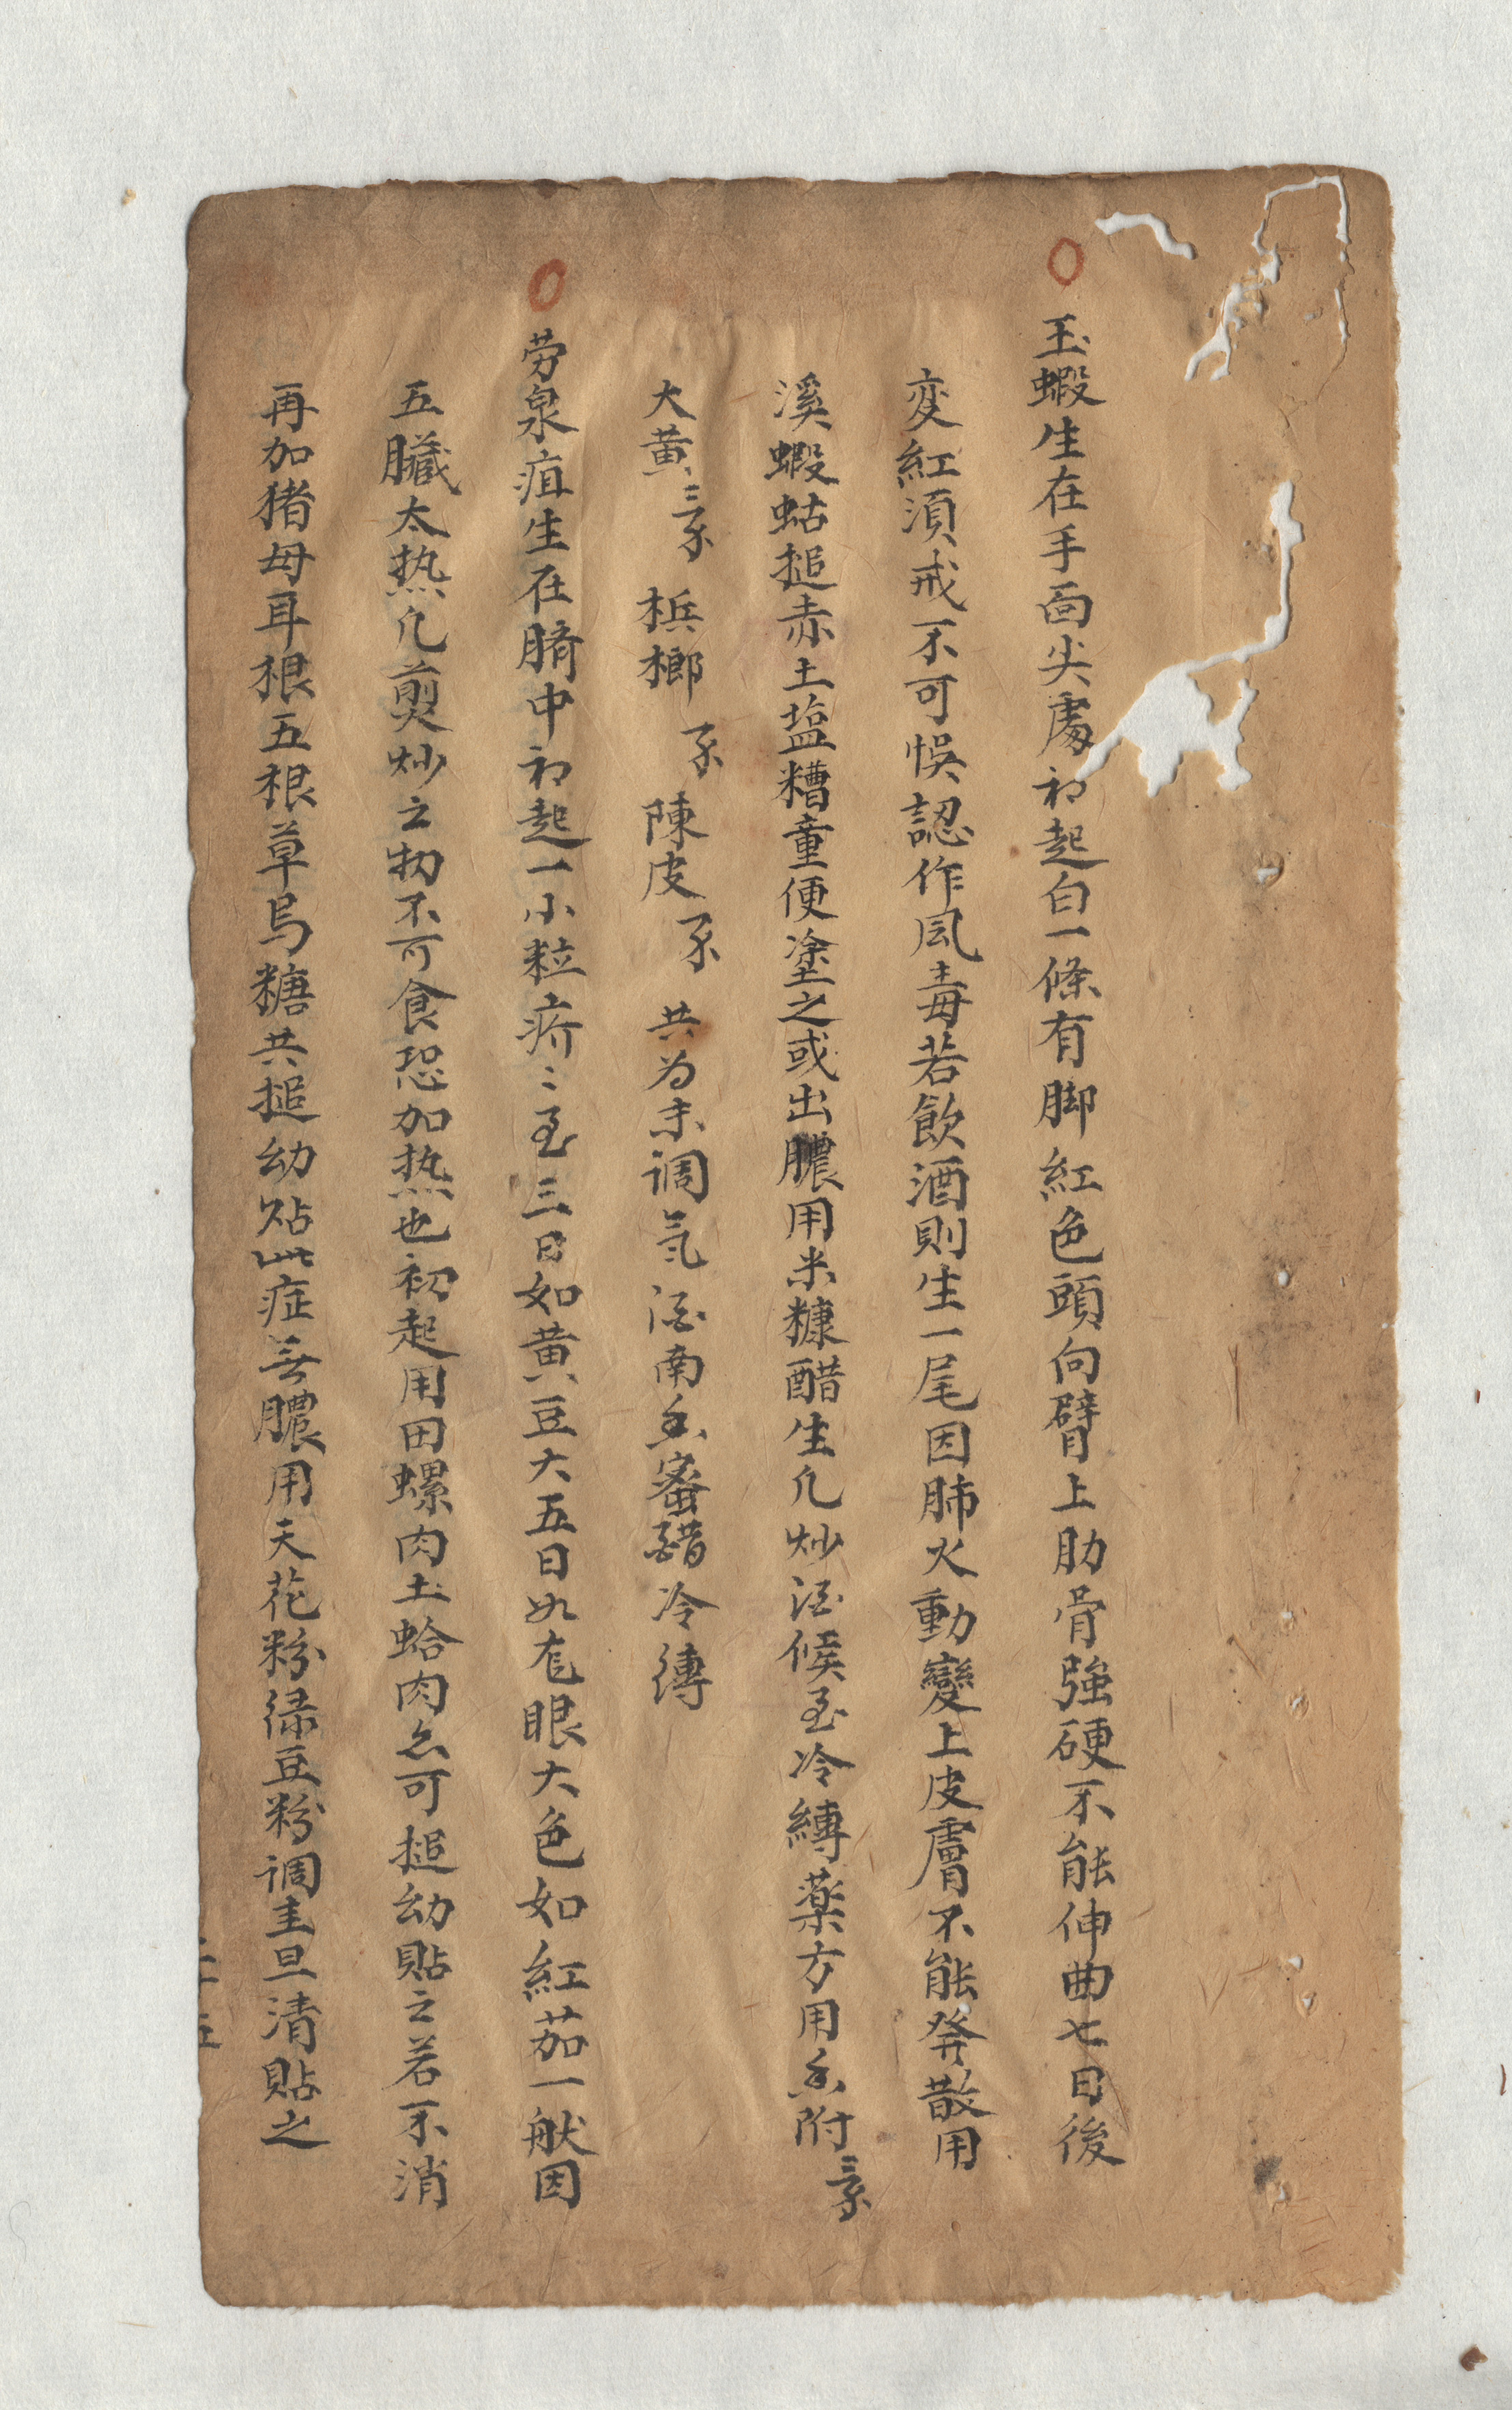 玉蝦生在手面尖處初起白一條有脚紅色頭向臂上肋骨強硬不能伸曲七日後
变紅須戒不可悞認作風毒若飲酒則生一尾因肺火動變上皮膚不能發散用
溪蝦蛄搥赤土塩糟童便塗之或出膿用米糠醋生凢炒活候至冷縛藥方用香附三錢
大黄三錢 梹榔 陳皮 共为末调氣活南香蜜醋冷縛
劳泉疽生在臍中初起一小粒疥〻至三日如黄豆大五日如龙眼大色如紅茄一般因
五臟太热凢煎炒之物不可食恐加热也初起用田螺肉土蛤肉亦可搥幼貼之若不消
再加猪母耳根五根草烏糖共搥幼贴此症無膿用天花粉绿豆粉调圭旦清貼之